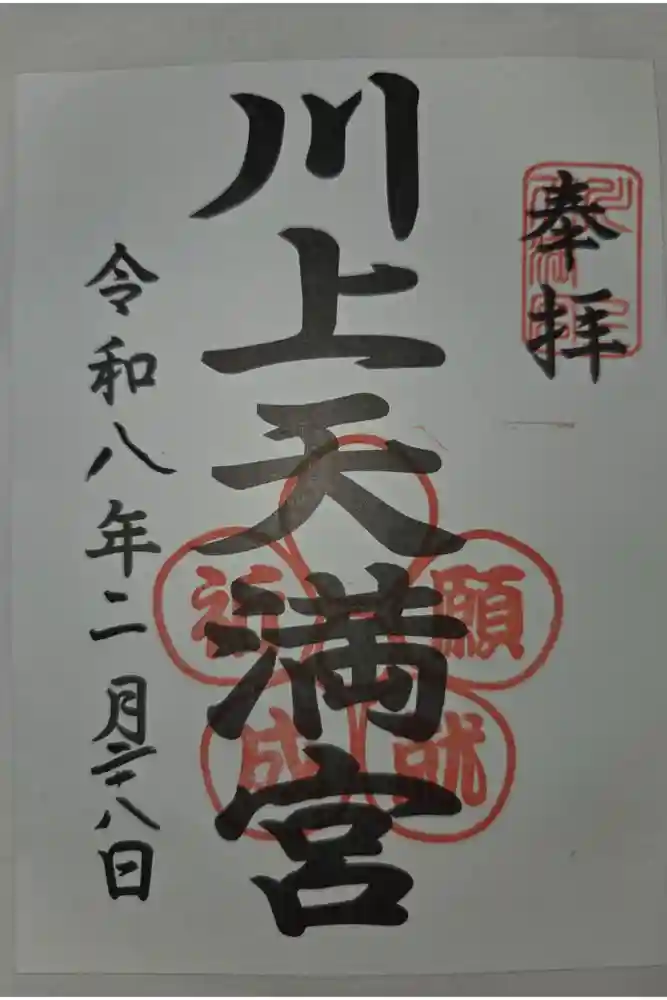 奉拝
川上天満宮
祈願
成就
令和八年二月二十八日